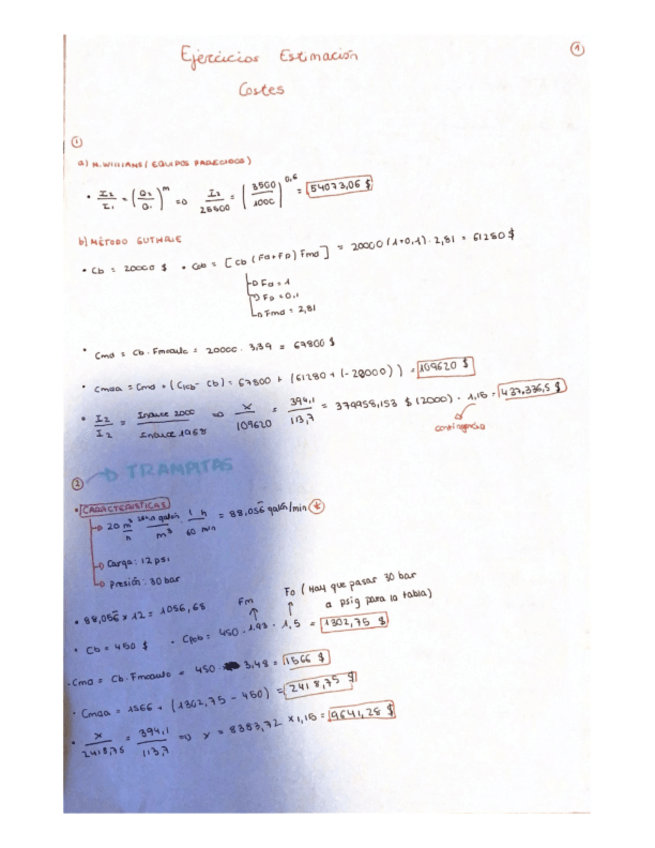 1
Ejercicios Estimación
Costes
①
a) M. WILLIAMS (EQUIPOS PARECIDOS)
• I₂/I₁ = (Q₂/Q₁)^m => I₂/25500 = (3500/1000)^0,6 = 54073,06 $
b) MÉTODO GUTHRIE
• Cb = 20000 $ • Ccb = [Cb (Fa+Fp) Fmd] = 20000 (1+0,1) · 2,81 = 61280 $
Fa = 1
Fa = 0,1
Fmd = 2,81
• Cmd = Cb · Fmodulo = 20000 · 3,39 = 67800 $
• Cmaa = Cmd + (Ccb - Cb) = 67800 + (61280 + (-20000)) = 109620 $
• I₂/I₂ = Indice 2000/Indice 1968 => X/109620 = 394,1/113,7 = 379958,153 $ (2000) · 1,15 = 437.336,5 $
contingencia
② TRAMPITAS
• CARACTERÍSTICAS
20 m³/h · galón/m³ · 1 h/60 min = 88,056 galón/min *
Carga: 12 psi
Presión: 30 bar
• 88,056 x 12 = 1056,68
Fm
Fo (Hay que pasar 30 bar
a psig para la tabla)
• Cb = 450 $ · Cpcb = 450 · 1,93 · 1,5 = 1302,75 $
• Cmd = Cb · Fmodulo = 450 · 3,48 = 1566 $
• Cmaa = 1566 + (1302,75 - 450) = 2418,75 $
• X/2418,75 = 394,1/113,7 => X = 8383,72 x 1,15 = 9641,28 $